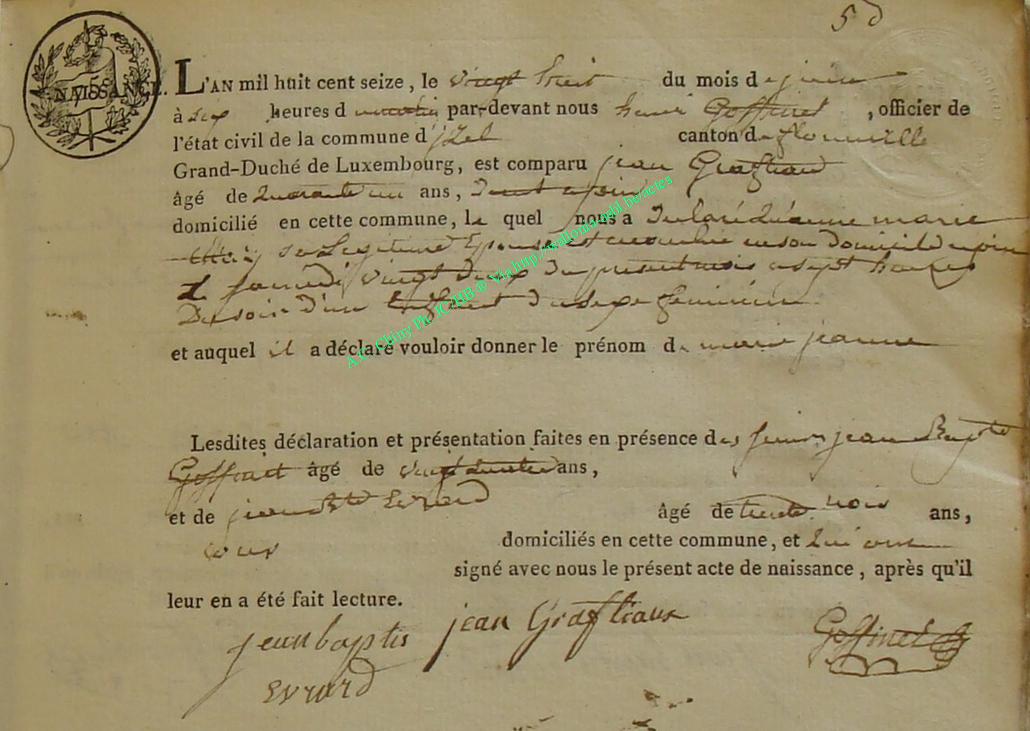 5
NAISSANCE.
L'AN mil huit cent seize, le vingt huit du mois de juin
à six heures d matin par-devant nous henri Goffinet, officier de
l'état civil de la commune d'jzel canton de florenville
Grand-Duché de Luxembourg, est comparu jean Grafliaux
âgé de quarante un ans,
domicilié en cette commune, le quel nous a declaré qu'anne marie
sa Legitime Epouse est accouchée en son domicile
Le samedi vingt deux du present mois a sept heures
Du soir D'un Enfant du sexe feminin
et auquel il a déclaré vouloir donner le prénom de marie jeanne
Lesdites déclaration et présentation faites en présence des jean Bapte
Goffinet âgé de vingt quatre ans,
et de jean Bte Evrard âgé de trente trois ans,
tous domiciliés en cette commune, et qui ont
signé avec nous le présent acte de naissance, après qu'il
leur en a été fait lecture.
jean baptis jean Grafliaux Goffinet
Evrard